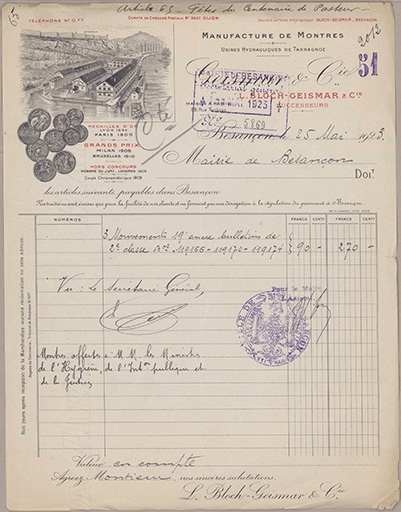 Article 63. Fêtes du Centenaire de Pasteur
TÉLÉPHONE Nº 0.77
COMPTE DE CHÈQUES POSTAUX DIJON
BLOCH-GEISMAR, BESANÇON
63
MANUFACTURE DE MONTRES
USINES HYDRAULIQUES DE TARRAGNOZ
2012
Geismar & Cie
51
L. BLOCH-GEISMAR & Cie
SUCCESSEURS
MAIRIE DE BESANÇON
Secrétariat général
1923
Nº 5869
MÉDAILLES D'OR
LYON 1894
PARIS 1900
GRANDS PRIX
MILAN 1906
BRUXELLES 1910
HORS CONCOURS
MEMBRE DU JURY, LONDRES 1908
Coupe Chronométrique 1908
Besançon, le 25 Mai 1923.
Mairie de Besançon
Doit
les articles suivants, payables dans Besançon
NUMÉROS
FRANCS
CENT
FRANCS
CENT
3 Mouvements 19 avec bulletins de
2e classe Nos 119166-119170-119174
90 -
270 -
Vu: Le Secrétaire Général,
Pour le Maire
VILLE DE BESANÇON
Montres offertes à M.M. les Ministres
de l'Hygiène, de l'Inson publique et
de la Guerre
Valeur en compte
Agréez, Monsieur, nos sincères salutations.
L. Bloch-Geismar & Cie